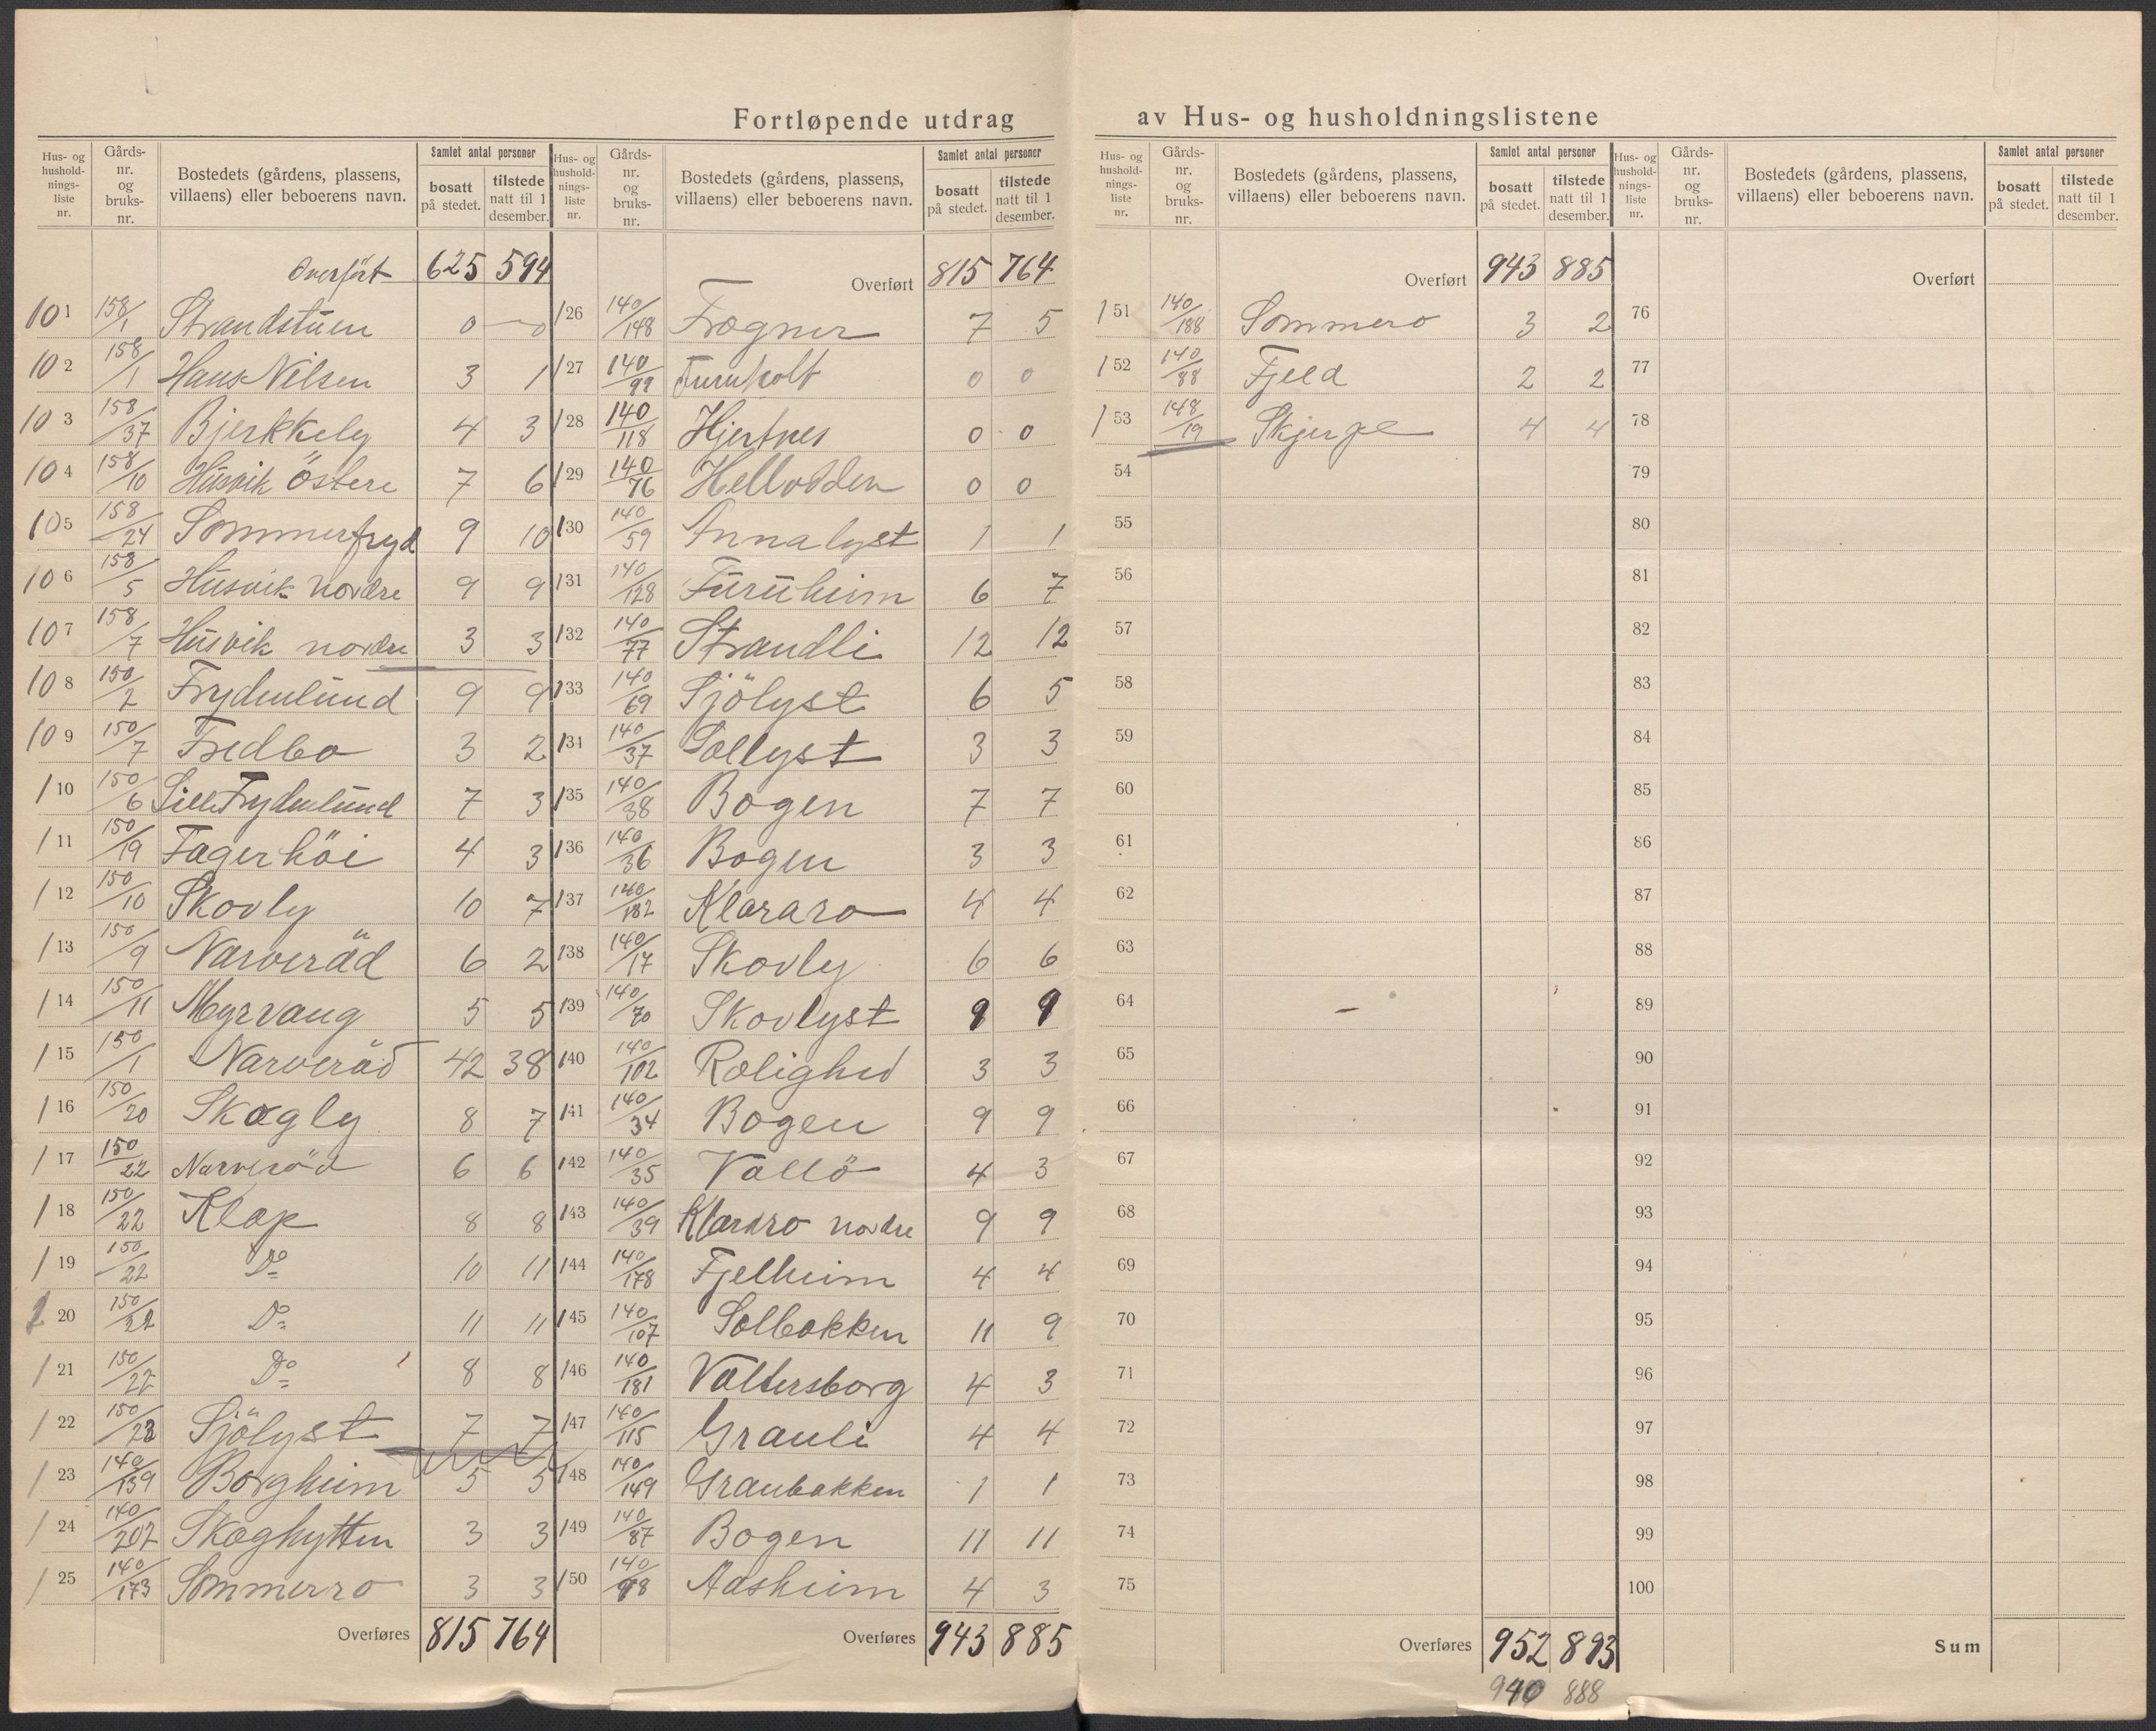 Fortløpende utdrag av Hus- og husholdningslistene
Hus- og husholdningsliste nr. | Gårds-nr. og bruks-nr. | Bostedets (gårdens, plassens, villaens) eller beboerens navn. | Samlet antal personer | bosatt på stedet. | tilstede natt til 1 desember.
Overført 625 594
101 158/1 Strandstuen 0 0
102 158/1 Hans Nilsen 3 1
103 158/37 Bjerkkely 4 3
104 158/10 Husvik Östere 7 6
105 158/24 Sommerfryd 9 10
106 158/5 Husvik nordre 9 9
107 158/7 Husvik nordre 3 3
108 150/2 Frydenlund 9 9
109 150/7 Fredbo 3 2
110 150/6 Lille Frydenlund 7 3
111 150/19 Fagerhöi 4 3
112 150/10 Skovly 10 7
113 150/9 Narveröd 6 2
114 150/11 Myrvang 5 5
115 150/1 Narveröd 42 38
116 150/20 Skogly 8 7
117 150/22 Narveröd 6 6
118 150/22 Klop 8 8
119 150/22 Do 10 11
120 150/22 Do 11 11
121 150/22 Do 8 8
122 150/22 Sjölyst 7 7
123 140/139 Borgheim 5 5
124 140/202 Skoghytten 3 3
125 140/173 Sommerro 3 3
Overføres 815 764
Hus- og husholdningsliste nr. | Gårds-nr. og bruks-nr. | Bostedets (gårdens, plassens, villaens) eller beboerens navn. | Samlet antal personer | bosatt på stedet. | tilstede natt til 1 desember.
Overført 815 764
126 140/148 Frogner 7 5
127 140/99 Furuholt 0 0
128 140/118 Hjertnes 0 0
129 140/76 Hellodden 0 0
130 140/59 Annalyst 1 1
131 140/128 Furuheim 6 7
132 140/77 Strandli 12 12
133 140/69 Sjölyst 6 5
134 140/37 Sollyst 3 3
135 140/38 Bogen 7 7
136 140/36 Bogen 3 3
137 140/182 Klararo 4 4
138 140/17 Skovly 6 6
139 140/70 Skovlyst 9 9
140 140/102 Rolighed 3 3
141 140/34 Bogen 9 9
142 140/35 Vallö 4 3
143 140/39 Klararo nordre 9 9
144 140/178 Fjelheim 4 4
145 140/107 Solbakken 11 9
146 140/181 Valtersborg 4 3
147 140/115 Granli 4 4
148 140/149 Granbakken 1 1
149 140/87 Bogen 11 11
150 140/98 Aasheim 4 3
Overføres 943 885
Hus- og husholdningsliste nr. | Gårds-nr. og bruks-nr. | Bostedets (gårdens, plassens, villaens) eller beboerens navn. | Samlet antal personer | bosatt på stedet. | tilstede natt til 1 desember.
Overført 943 885
151 140/188 Sommero 3 2
152 140/88 Fjeld 2 2
153 148/19 Skjerpe 4 4
54
55
56
57
58
59
60
61
62
63
64
65
66
67
68
69
70
71
72
73
74
75
Overføres 952 893
940 888
Hus- og husholdningsliste nr. | Gårds-nr. og bruks-nr. | Bostedets (gårdens, plassens, villaens) eller beboerens navn. | Samlet antal personer | bosatt på stedet. | tilstede natt til 1 desember.
Overført
76
77
78
79
80
81
82
83
84
85
86
87
88
89
90
91
92
93
94
95
96
97
98
99
100
Sum